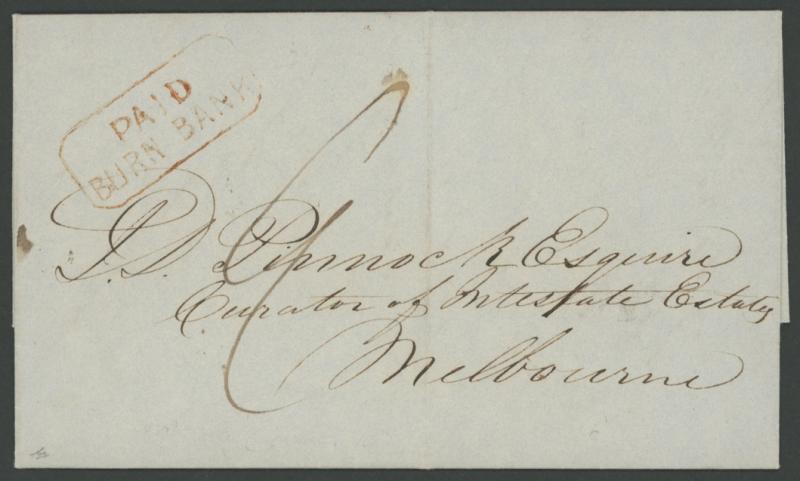 PAID
BURN BANK
J.D. Pinnock Esquire
Curator of Intestate Estates
Melbourne